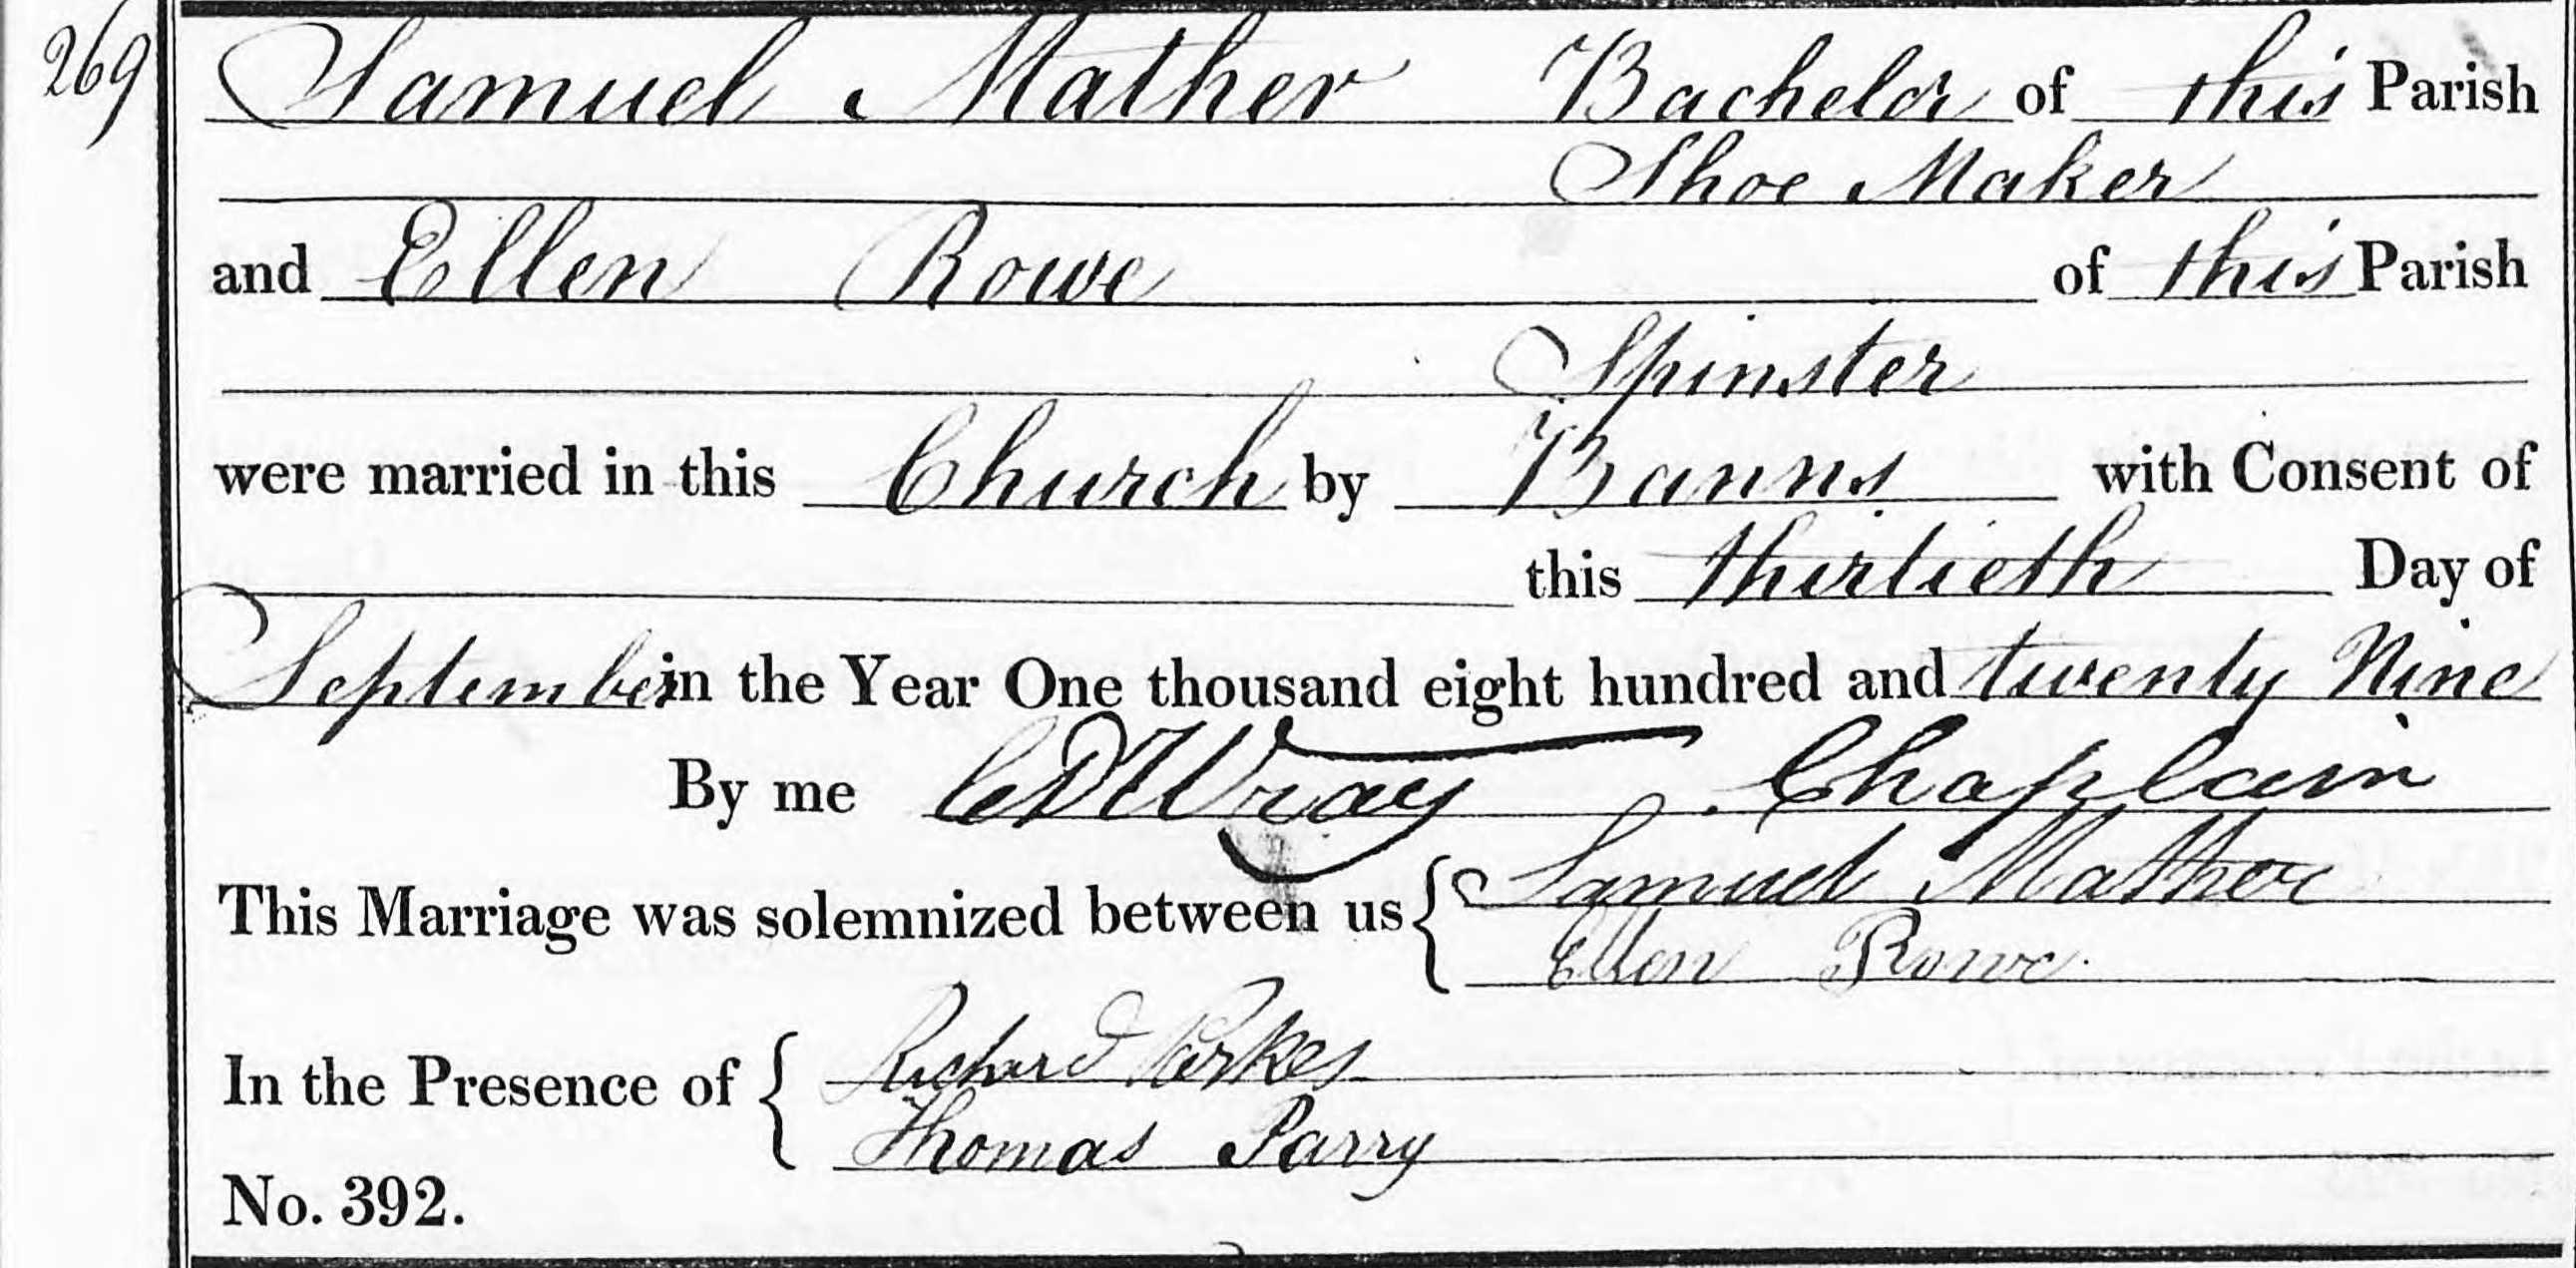 269
Samuel Mather Bachelor of this Parish
Shoe Maker
and Ellen Rowe of this Parish
Spinster
were married in this Church by Banns with Consent of
this thirtieth Day of
September in the Year One thousand eight hundred and twenty Nine
By me CD Wray Chaplain
This Marriage was solemnized between us { Samuel Mather
Ellen Rowe
In the Presence of { Richard Perkes
Thomas Parry
No. 392.